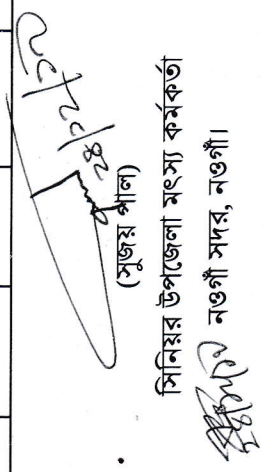 (সুজয় পাল)
সিনিয়র উপজেলা মৎস্য কর্মকর্তা
নওগাঁ সদর, নওগাঁ।